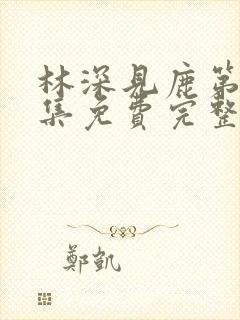 林深見鹿第
集免費完整
鄭凱